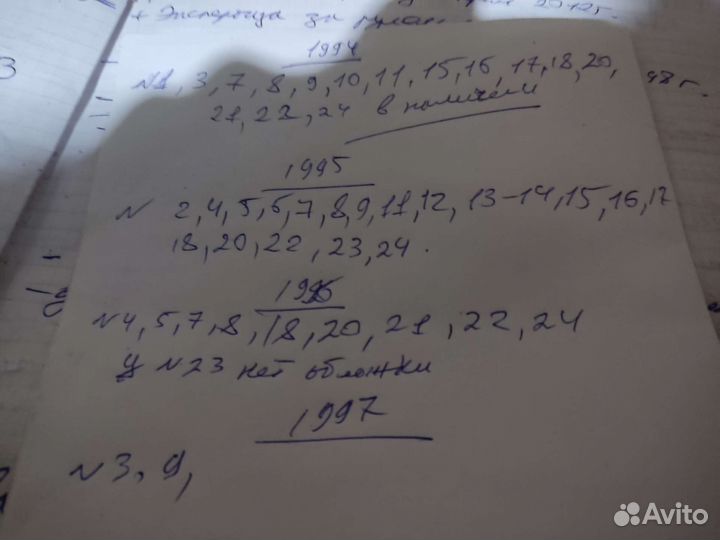 + Экспертиза за
1994
N1, 3, 7, 8, 9, 10, 11, 15, 16, 17, 18, 20,
21, 22, 24 в наличии
1995
N 2, 4, 5, 6, 7, 8, 9, 11, 12, 13-14, 15, 16, 17
18, 20, 22, 23, 24.
1996
N4, 5, 7, 8, 18, 20, 21, 22, 24
У N23 нет обложки
1997
N3, 9,
Avito